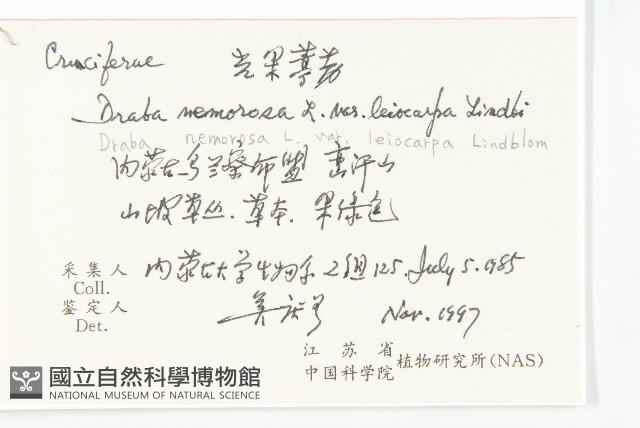 Cruciferae 光果葶苈
Draba nemorosa L. var. leiocarpa Lindbl
Draba nemorosa L. var. leiocarpa Lindblom
内蒙古乌兰察布盟 蛮汗山
山坡草丛.草本.果绿色
采集人 内蒙古大学生物系2组125. July 5. 1985
Coll.
鉴定人 Nov. 1997
Det.
江苏省
中国科学院 植物研究所(NAS)
國立自然科學博物館
NATIONAL MUSEUM OF NATURAL SCIENCE